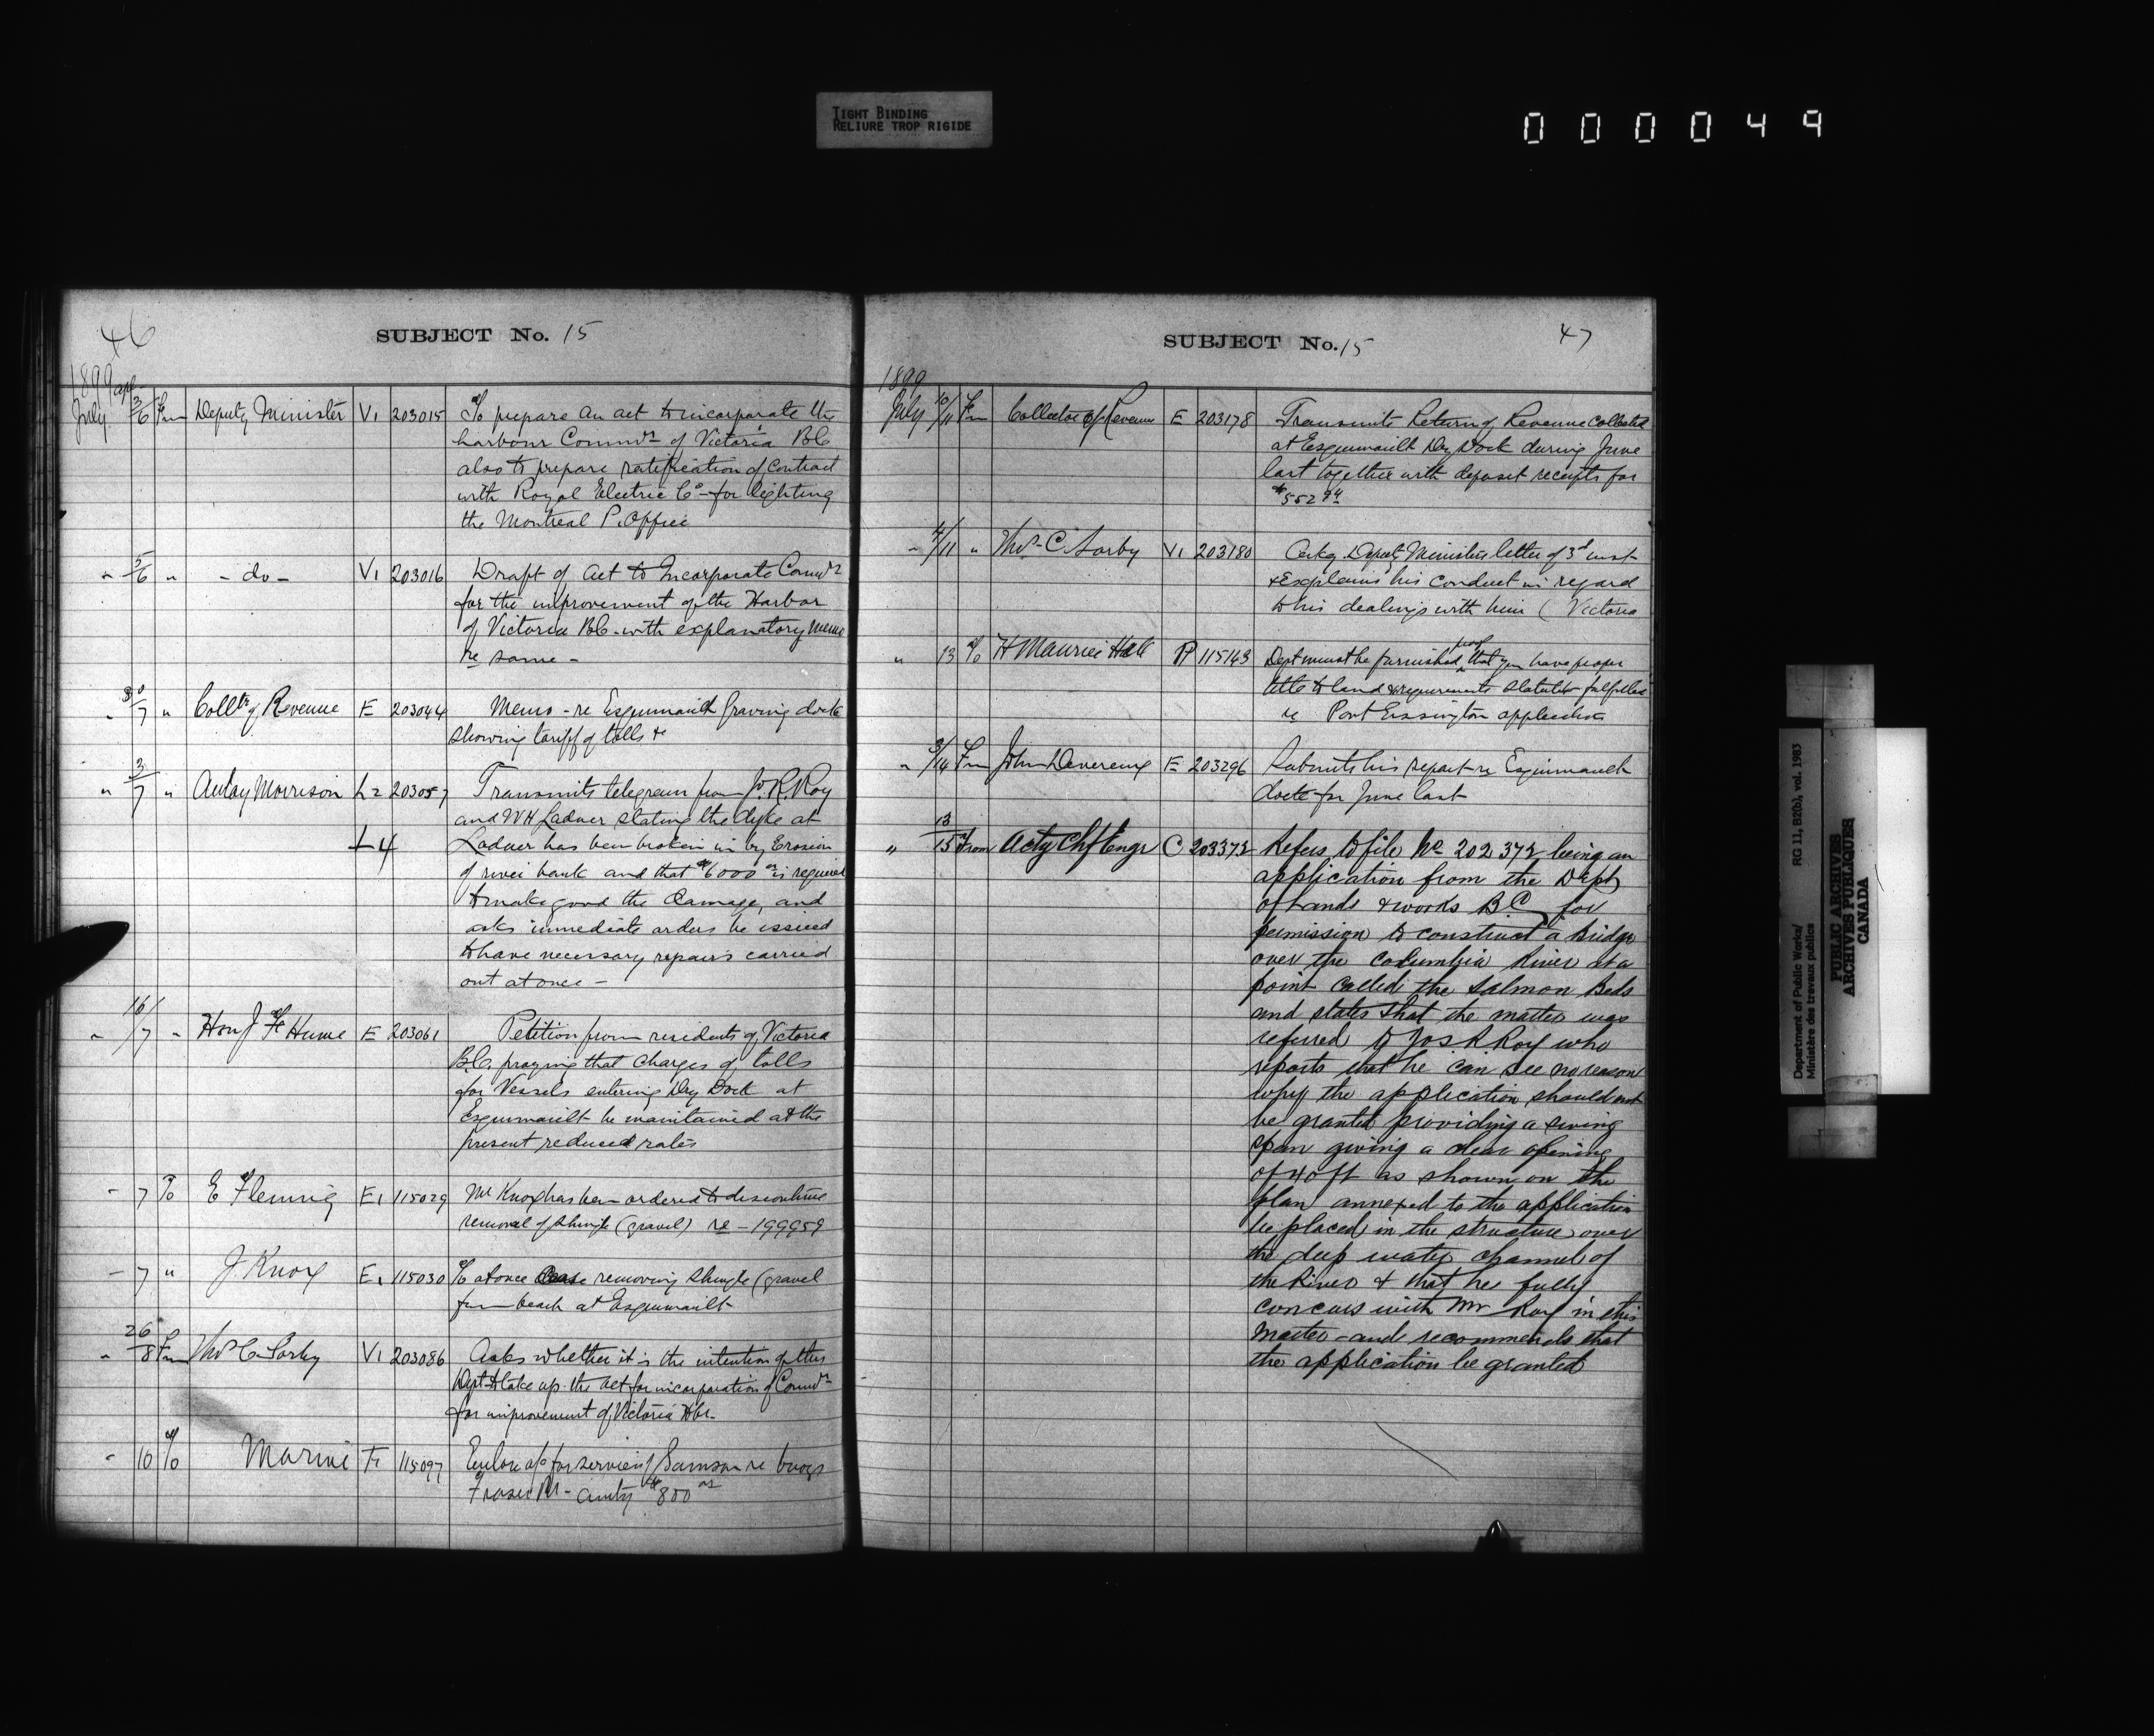 TIGHT BINDING
RELIURE TROP RIGIDE
000049
46
SUBJECT No. 15
1899
July 3/6 Fm Deputy Minister V1 203015 To prepare an act to incorporate the
harbour Commrs of Victoria B.C.
also to prepare ratification of contract
with Royal Electric Co - for lighting
the Montreal P. Office
" 5/6 " - do - V1 203016 Draft of Act to Incorporate Commrs
for the improvement of the Harbor
of Victoria B.C. with explanatory memo
re same -
" 30/7 " Colltr of Revenue E 203044 Memo - re Esquimault Graving dock
showing tariff of tolls &c
" 3/7 " Aulay Morrison L2 203057 Transmits telegram from J.R. Roy
and WH Ladner stating the dyke at
L4 Ladner has been broken in by Erosion
of river bank and that $6000 00 is required
to make good the damage, and
asks immediate orders be issued
to have necessary repairs carried
out at once -
" 16/7 " Hon J Fd Hume E 203061 Petition from residents of Victoria
B.C. praying that charges of tolls
for Vessels entering Dry Dock at
Esquimault be maintained at the
present reduced rates
" 7 To E Fleming E1 115029 Mr Knox has been ordered to discontinue
removal of shingle (gravel) re - 199959
- 7 " J Knox E1 115030 To at once cease removing shingle (gravel
from beach at Esquimault
" 26/8 Fm Thos C Sorby V1 203086 Asks whether it is the intention of this
Dept to take up the act for incorporation of Commrs
for improvement of Victoria Hbr.
" 10 To Marine F1 115097 Enclose a/c for services of Samson re buoys
Fraser R - amtg $800 00
SUBJECT No. 15
47
1899
July 10/11 Fm Collector of Revenue E 203178 Transmits Return of Revenue collected
at Esquimault Dry Dock during June
last together with deposit receipts for
$552 94
" 4/11 " Thos C. Sorby V1 203180 Ackg. Deputy Ministers letter of 3d inst
& Explains his conduct in regard
to his dealings with him ( Victoria
" 13 To H Maurice Hall P 115143 Dept must be furnished proof that you have proper
title to land & requirements statutes fulfilled
re Port Essington application
" 3/14 Fm John Devereux E 203296 Submits his report re Esquimault
dock for June last
" 13/15 From Actg Chf Engr C 203372 Refers to file No 202372 being an
application from the Dept
of Lands & works B.C. for
permission to construct a bridge
over the Columbia River at a
point called the Salmon Beds
and states that the matter was
referred to Jos R Roy who
reports that he can see no reason
why the application should not
be granted providing a swing
span giving a clear opening
of 40 ft as shown on the
plan annexed to the application
be placed in the structure over
the deep water channel of
the River & that he fully
concurs with Mr Roy in this
Matter - and recommends that
the application be granted
Department of Public Works/
Ministère des travaux publics
RG 11, B2(b), vol. 1983
PUBLIC ARCHIVES
ARCHIVES PUBLIQUES
CANADA